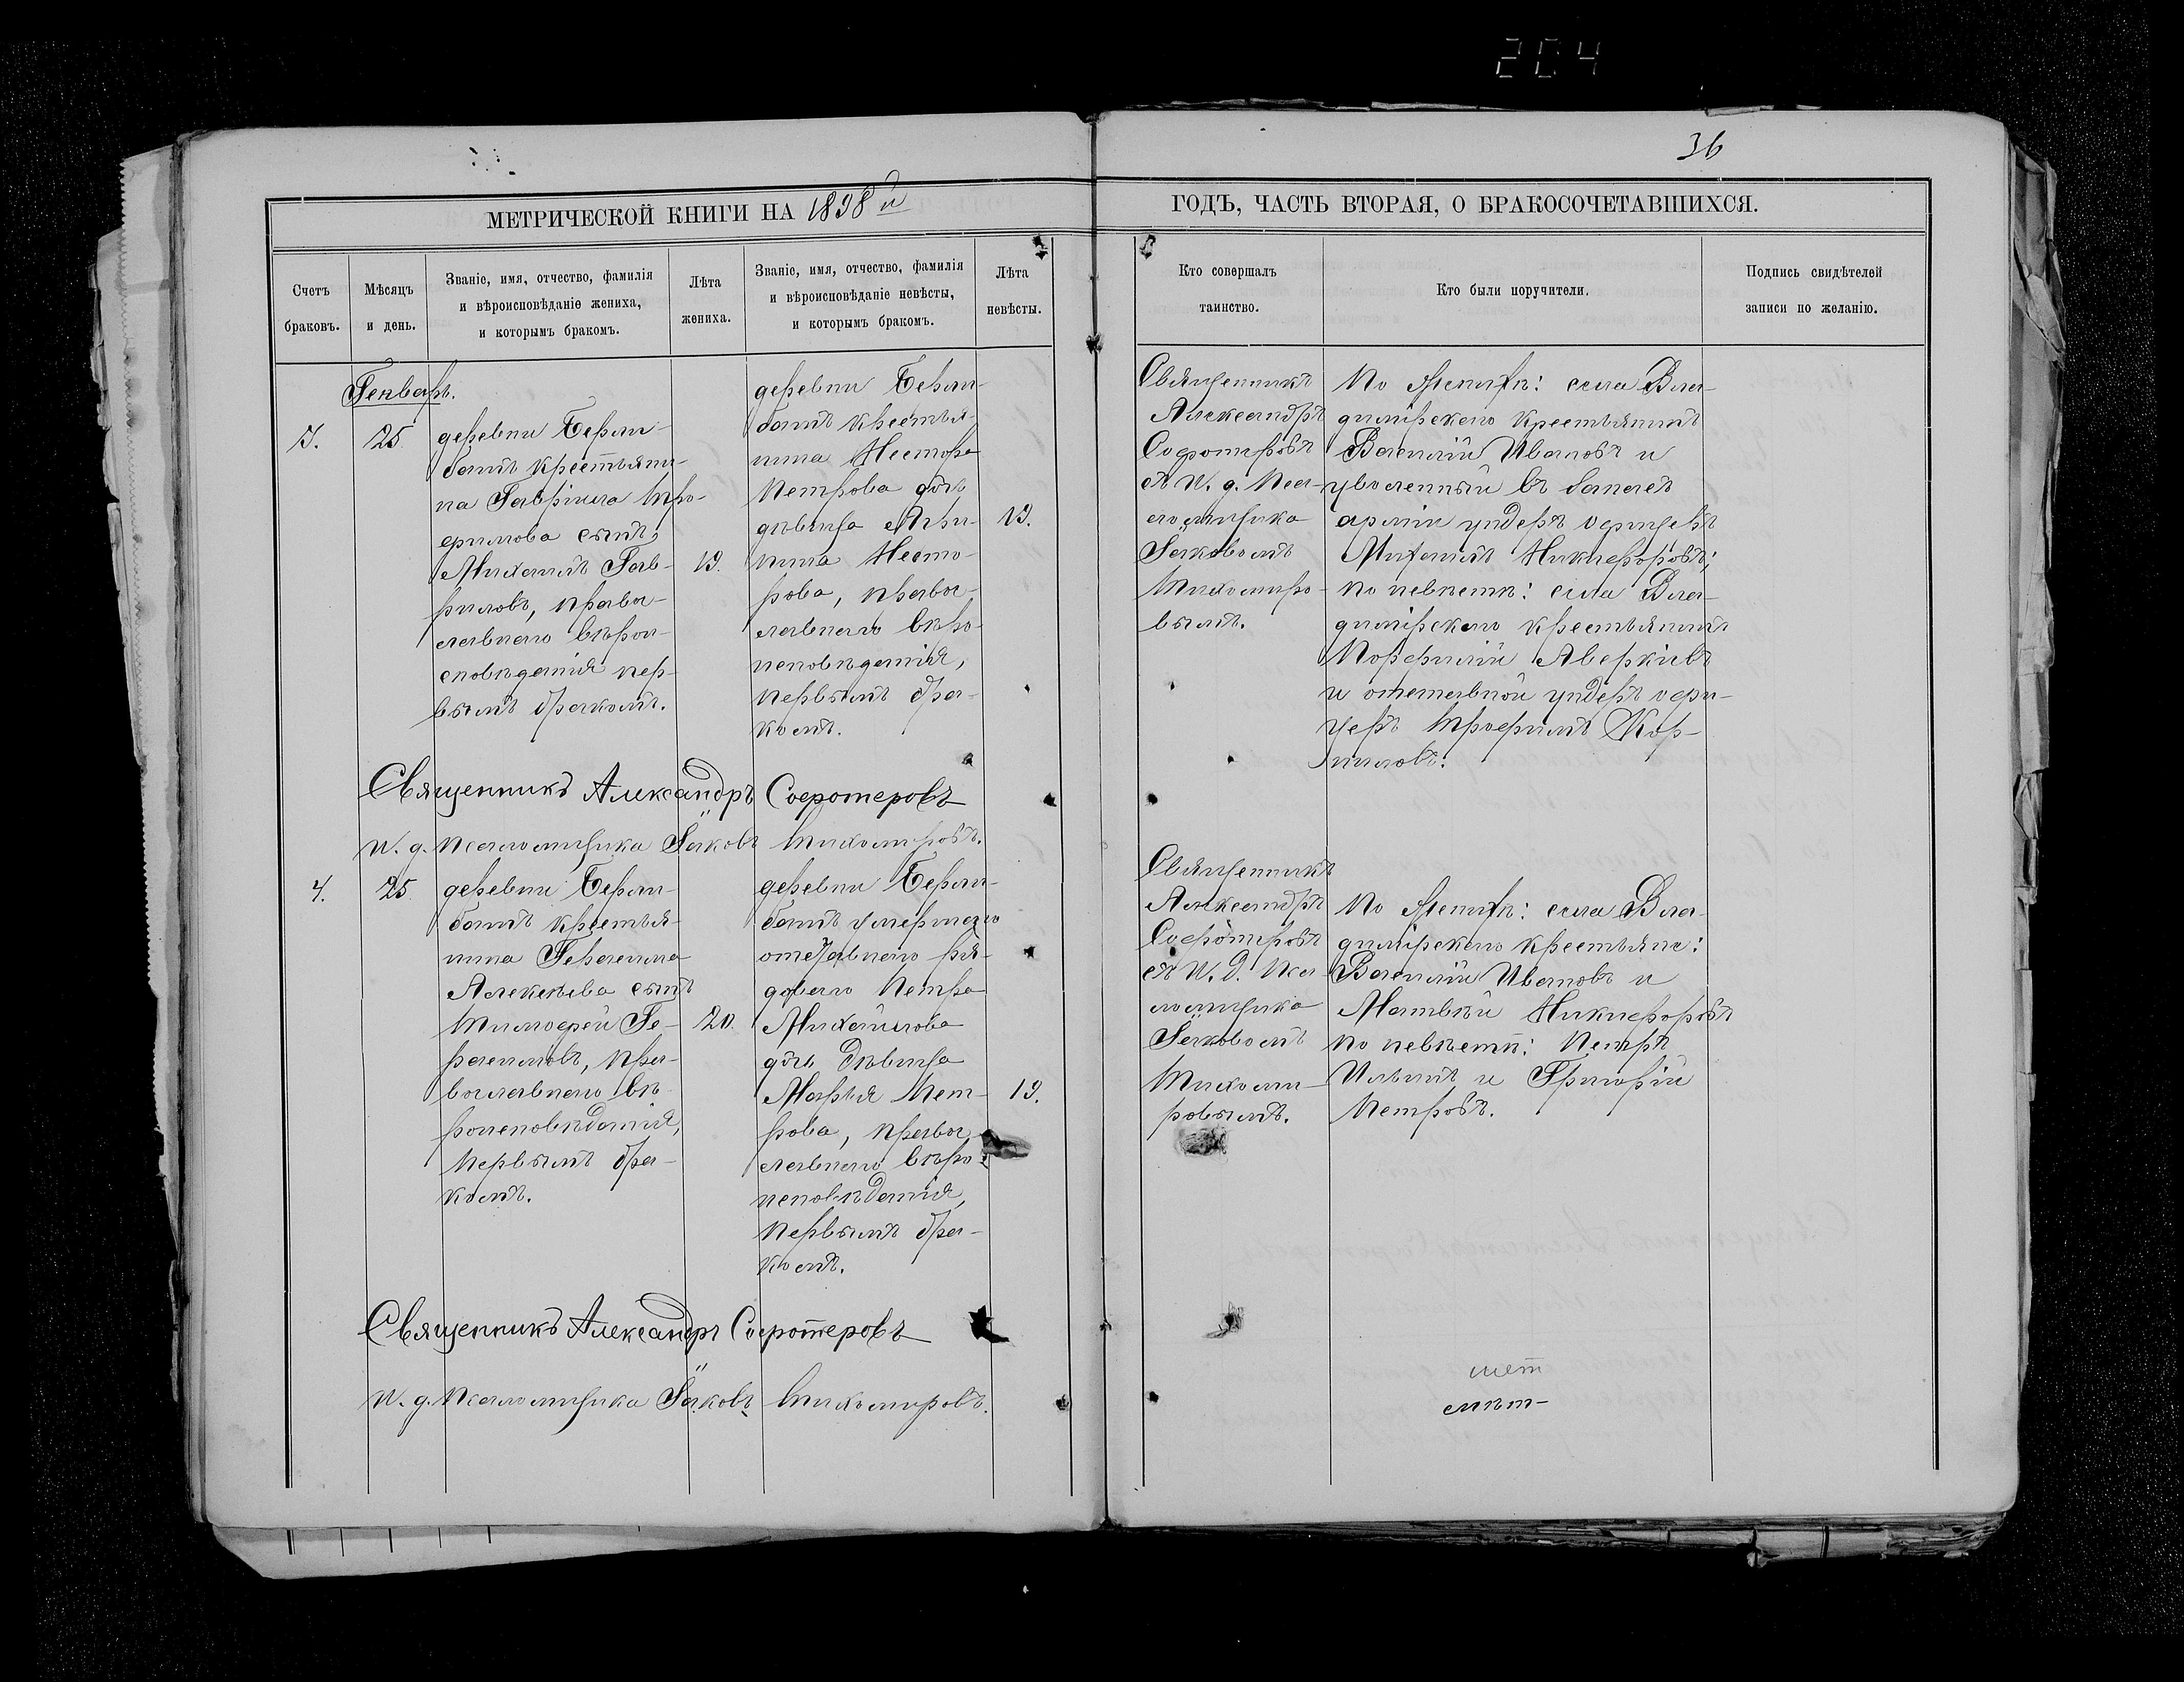 204
36
МЕТРИЧЕСКОЙ КНИГИ НА 1898й
ГОДЪ, ЧАСТЬ ВТОРАЯ, О БРАКОСОЧЕТАВШИХСЯ.
Счетъ
браковъ.
Мѣсяцъ
и день.
Званіе, имя, отчество, фамилія
и вѣроисповѣданіе жениха,
и которымъ бракомъ.
Лѣта
жениха.
Званіе, имя, отчество, фамилія
и вѣроисповѣданіе невѣсты,
и которымъ бракомъ.
Лѣта
невѣсты.
Кто совершалъ
таинство.
Кто были поручители.
Подпись свидѣтелей
записи по желанію.
Генварь.
3.
25
деревни
крестьяни-
на Гавріила Тро-
фимова сынъ,
Михаилъ Гав-
риловъ, право-
славнаго вѣрои-
сповѣданія пер-
вымъ бракомъ.
19.
деревни
крестья-
нина Нестора
Петрова дочь
дѣвица Агри-
пина Несто-
рова, право-
славнаго вѣро-
исповѣданія,
первымъ бра-
комъ.
19.
Священникъ
Александръ
Софотеровъ
съ И. д. Пса-
ломщика
Іаковомъ
Тихомиро-
вымъ.
По женихѣ: села Вла-
димірскаго крестьянинъ
Василій Ивановъ и
уволенный въ запасъ
арміи ундеръ офицеръ
Михаилъ Никифоровъ;
по невѣстѣ: села Вла-
димірскаго крестьянинъ
Порфилій Аверкіевъ
и отставной ундеръ офи-
церъ Трофимъ Кор-
ниловъ.
Священникъ Александръ Софотеровъ
И. д. Псаломщика Іаковъ Тихомировъ.
4.
25
деревни
крестья-
нина Герасима
Алексѣева сынъ
Тимофей Ге-
расимовъ, пра-
вославнаго вѣ-
роисповѣданія,
первымъ бра-
комъ.
20.
деревни
умершаго
отставнаго ря-
доваго Петра
Михайлова
дочь дѣвица
Марья Пет-
рова, право-
славнаго вѣро-
исповѣданія,
первымъ бра-
комъ.
19.
Священникъ
Александръ
Софотеровъ
съ И. д. Пса-
ломщика
Іаковомъ
Тихоми-
ровымъ.
По женихѣ: села Вла-
димірскаго крестьяне:
Василій Ивановъ и
Матвѣй Никифоровъ
по невѣстѣ: Петръ
Ильинъ и Григорій
Петровъ.
Священникъ Александръ Софотеровъ
И. д. Псаломщика Іаковъ Тихомировъ.